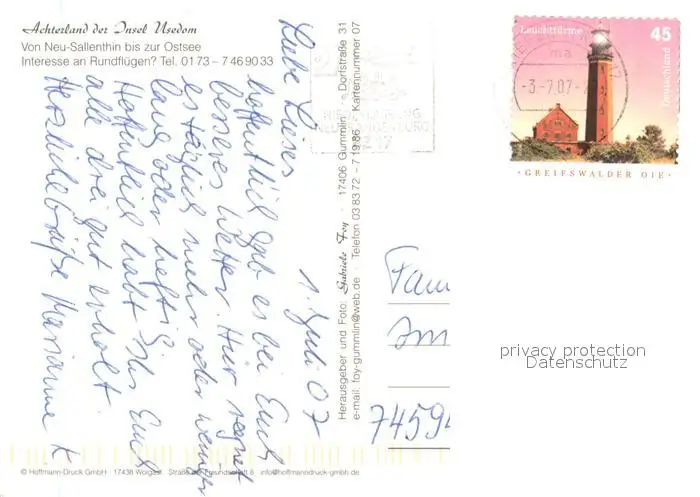 Achterland der Insel Usedom
Von Neu-Sallenthin bis zur Ostsee
Interesse an Rundflügen? Tel. 01 73 – 7 46 90 33
1. Juli 07
Liebe Lieses
hoffentlich gab es bei Euch
besseres Wetter. Hier regnet
es täglich mehr oder weniger
lang oder heftig.
Hoffentlich habt Ihr Euch
alle drei gut erholt.
Herzliche Grüße Marianne K
Herausgeber und Foto: Gabriele Foy · 17406 Gummlin · Dorfstraße 31
e-mail: foy-gummlin@web.de · Telefon 03 83 72 – 7 19 86 · Kartennummer 07
Leuchttürme
45
Deutschland
-3.-7.07-
· GREIFSWALDER OIE ·
Fam
Im
74594
privacy protection
Datenschutz
© Hoffmann-Druck GmbH · 17438 Wolgast · Straße der Freundschaft 8 · info@hoffmanndruck-gmbh.de